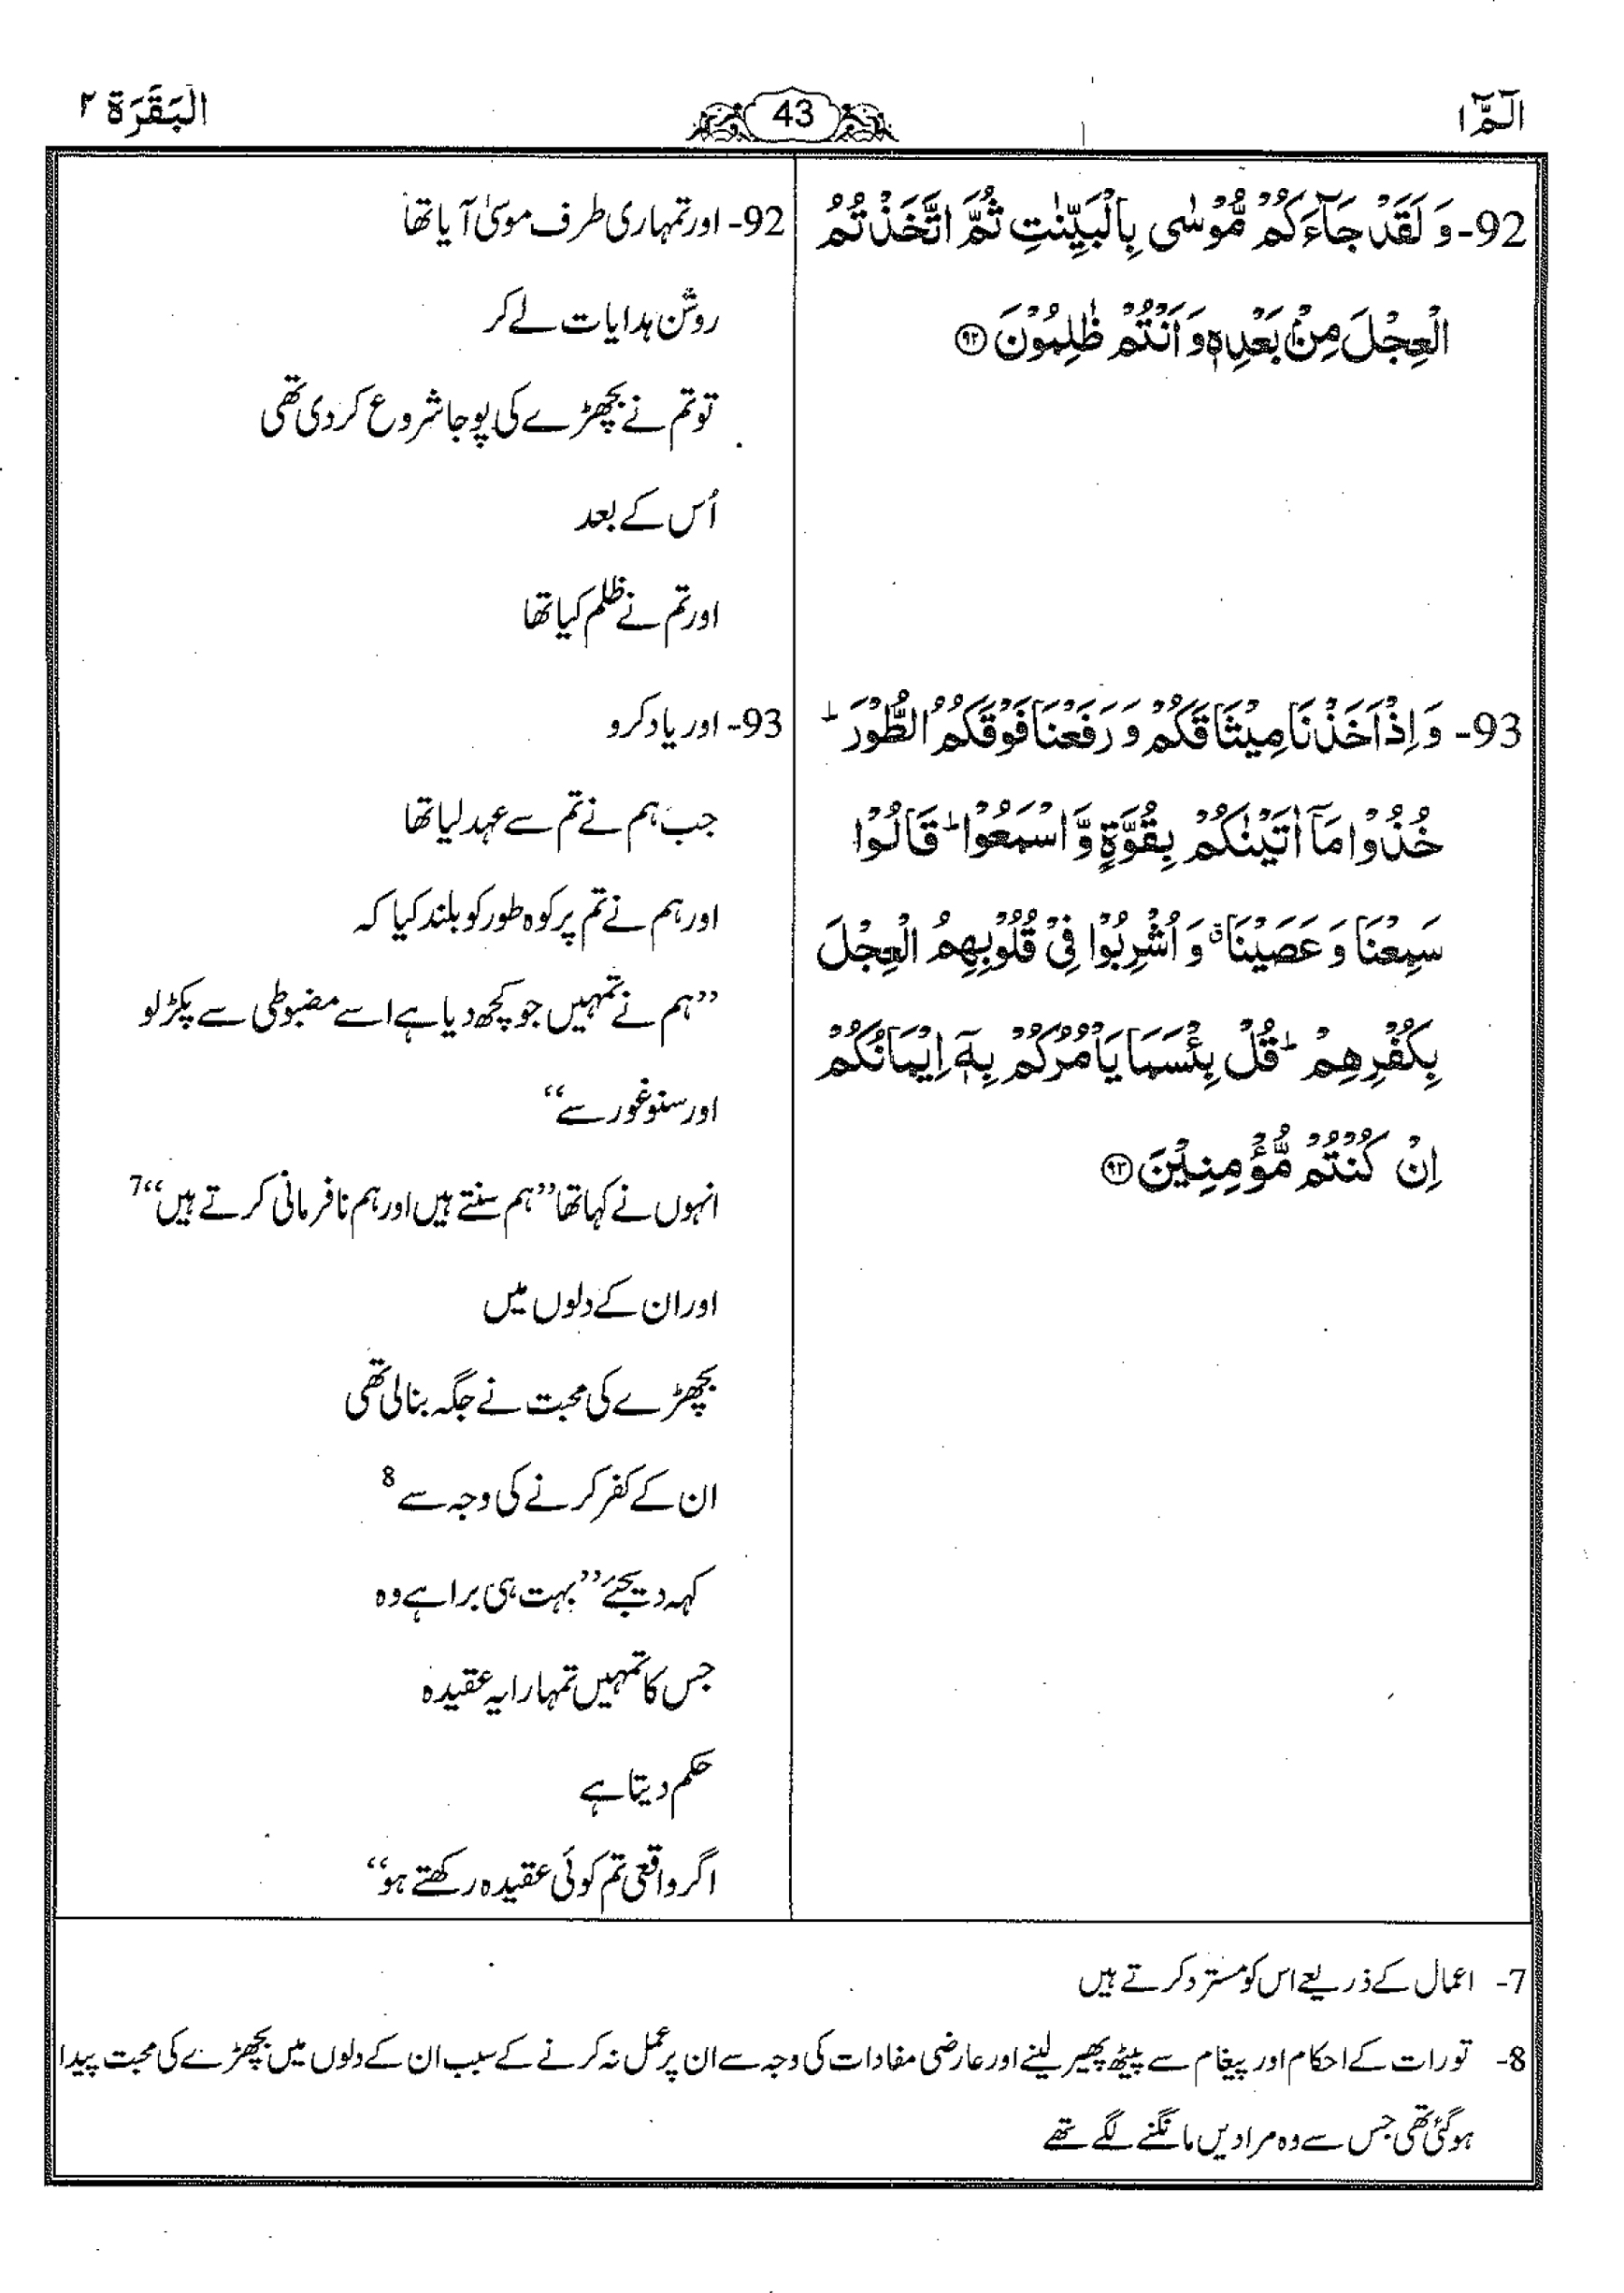 الٓمّٓ ۱
43
الْبَقَرَة ۲
92- وَ لَقَدْ جَآءَكُمْ مُّوْسٰى بِالْبَيِّنٰتِ ثُمَّ اتَّخَذْتُمُ
الْعِجْلَ مِنْۢ بَعْدِهٖ وَ اَنْتُمْ ظٰلِمُوْنَ ۹۲
93- وَ اِذْ اَخَذْنَا مِيْثَاقَكُمْ وَ رَفَعْنَا فَوْقَكُمُ الطُّوْرَ ؕ
خُذُوْا مَآ اٰتَيْنٰكُمْ بِقُوَّةٍ وَّ اسْمَعُوْا ؕ قَالُوْا
سَمِعْنَا وَ عَصَيْنَا ۗ وَ اُشْرِبُوْا فِيْ قُلُوْبِهِمُ الْعِجْلَ
بِكُفْرِهِمْ ؕ قُلْ بِئْسَمَا يَاْمُرُكُمْ بِهٖٓ اِيْمَانُكُمْ
اِنْ كُنْتُمْ مُّؤْمِنِيْنَ ۹۳
92- اور تمہاری طرف موسیٰ آیا تھا
روشن ہدایات لے کر
تو تم نے بچھڑے کی پوجا شروع کر دی تھی
اُس کے بعد
اور تم نے ظلم کیا تھا
93- اور یاد کرو
جب ہم نے تم سے عہد لیا تھا
اور ہم نے تم پر کوہ طور کو بلند کیا کہ
”ہم نے تمہیں جو کچھ دیا ہے اسے مضبوطی سے پکڑ لو
اور سنو غور سے“
انہوں نے کہا تھا ”ہم سنتے ہیں اور ہم نافرمانی کرتے ہیں“7
اور ان کے دلوں میں
بچھڑے کی محبت نے جگہ بنالی تھی
ان کے کفر کرنے کی وجہ سے 8
کہہ دیجئے ”بہت ہی برا ہے وہ
جس کا تمہیں تمہارا یہ عقیدہ
حکم دیتا ہے
اگر واقعی تم کوئی عقیدہ رکھتے ہو“
7- اعمال کے ذریعے اس کو مسترد کرتے ہیں
8- تورات کے احکام اور پیغام سے پیٹھ پھیر لینے اور عارضی مفادات کی وجہ سے ان پر عمل نہ کرنے کے سبب ان کے دلوں میں بچھڑے کی محبت پیدا
ہوگئی تھی جس سے وہ مرادیں مانگنے لگے تھے